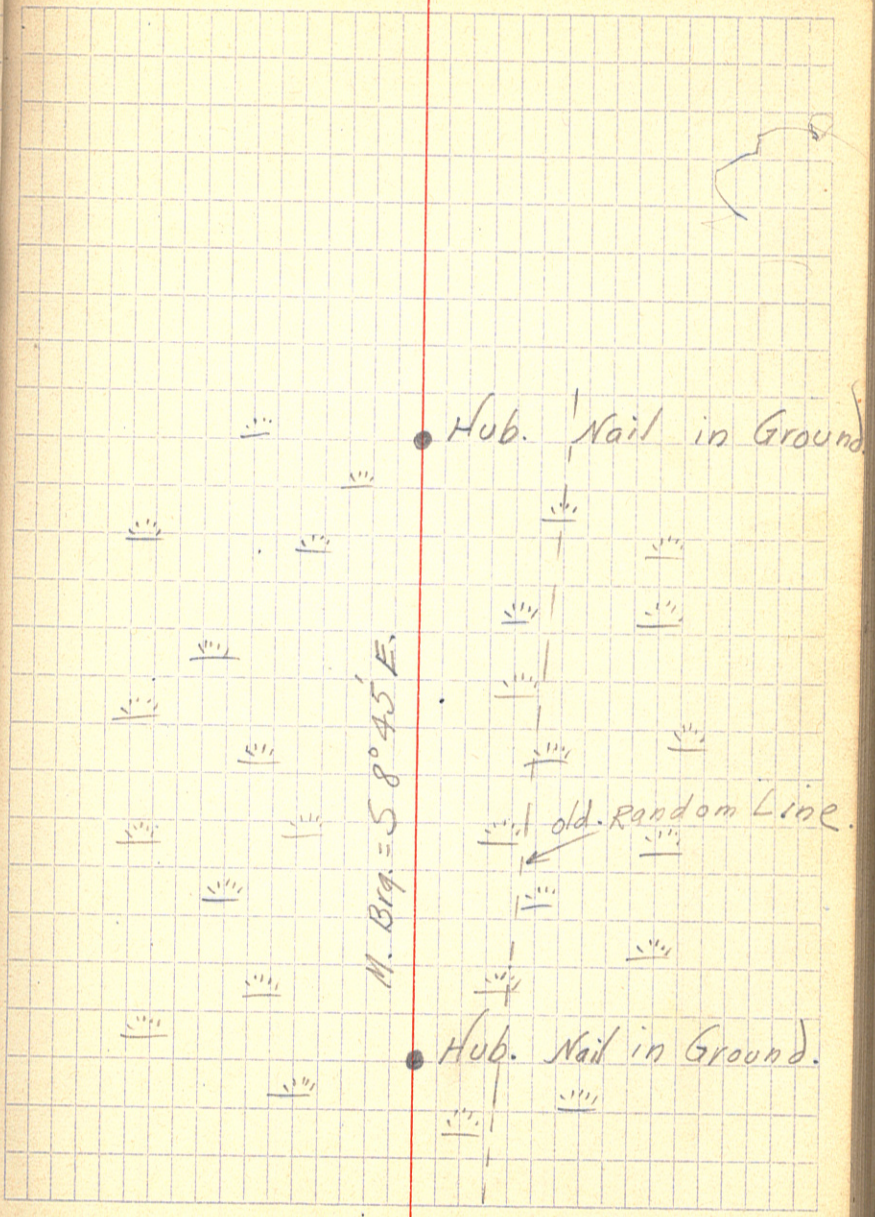 Hub. Nail in Ground.
M. Brg. = S 8° 45' E.
old. Random Line.
Hub. Nail in Ground.